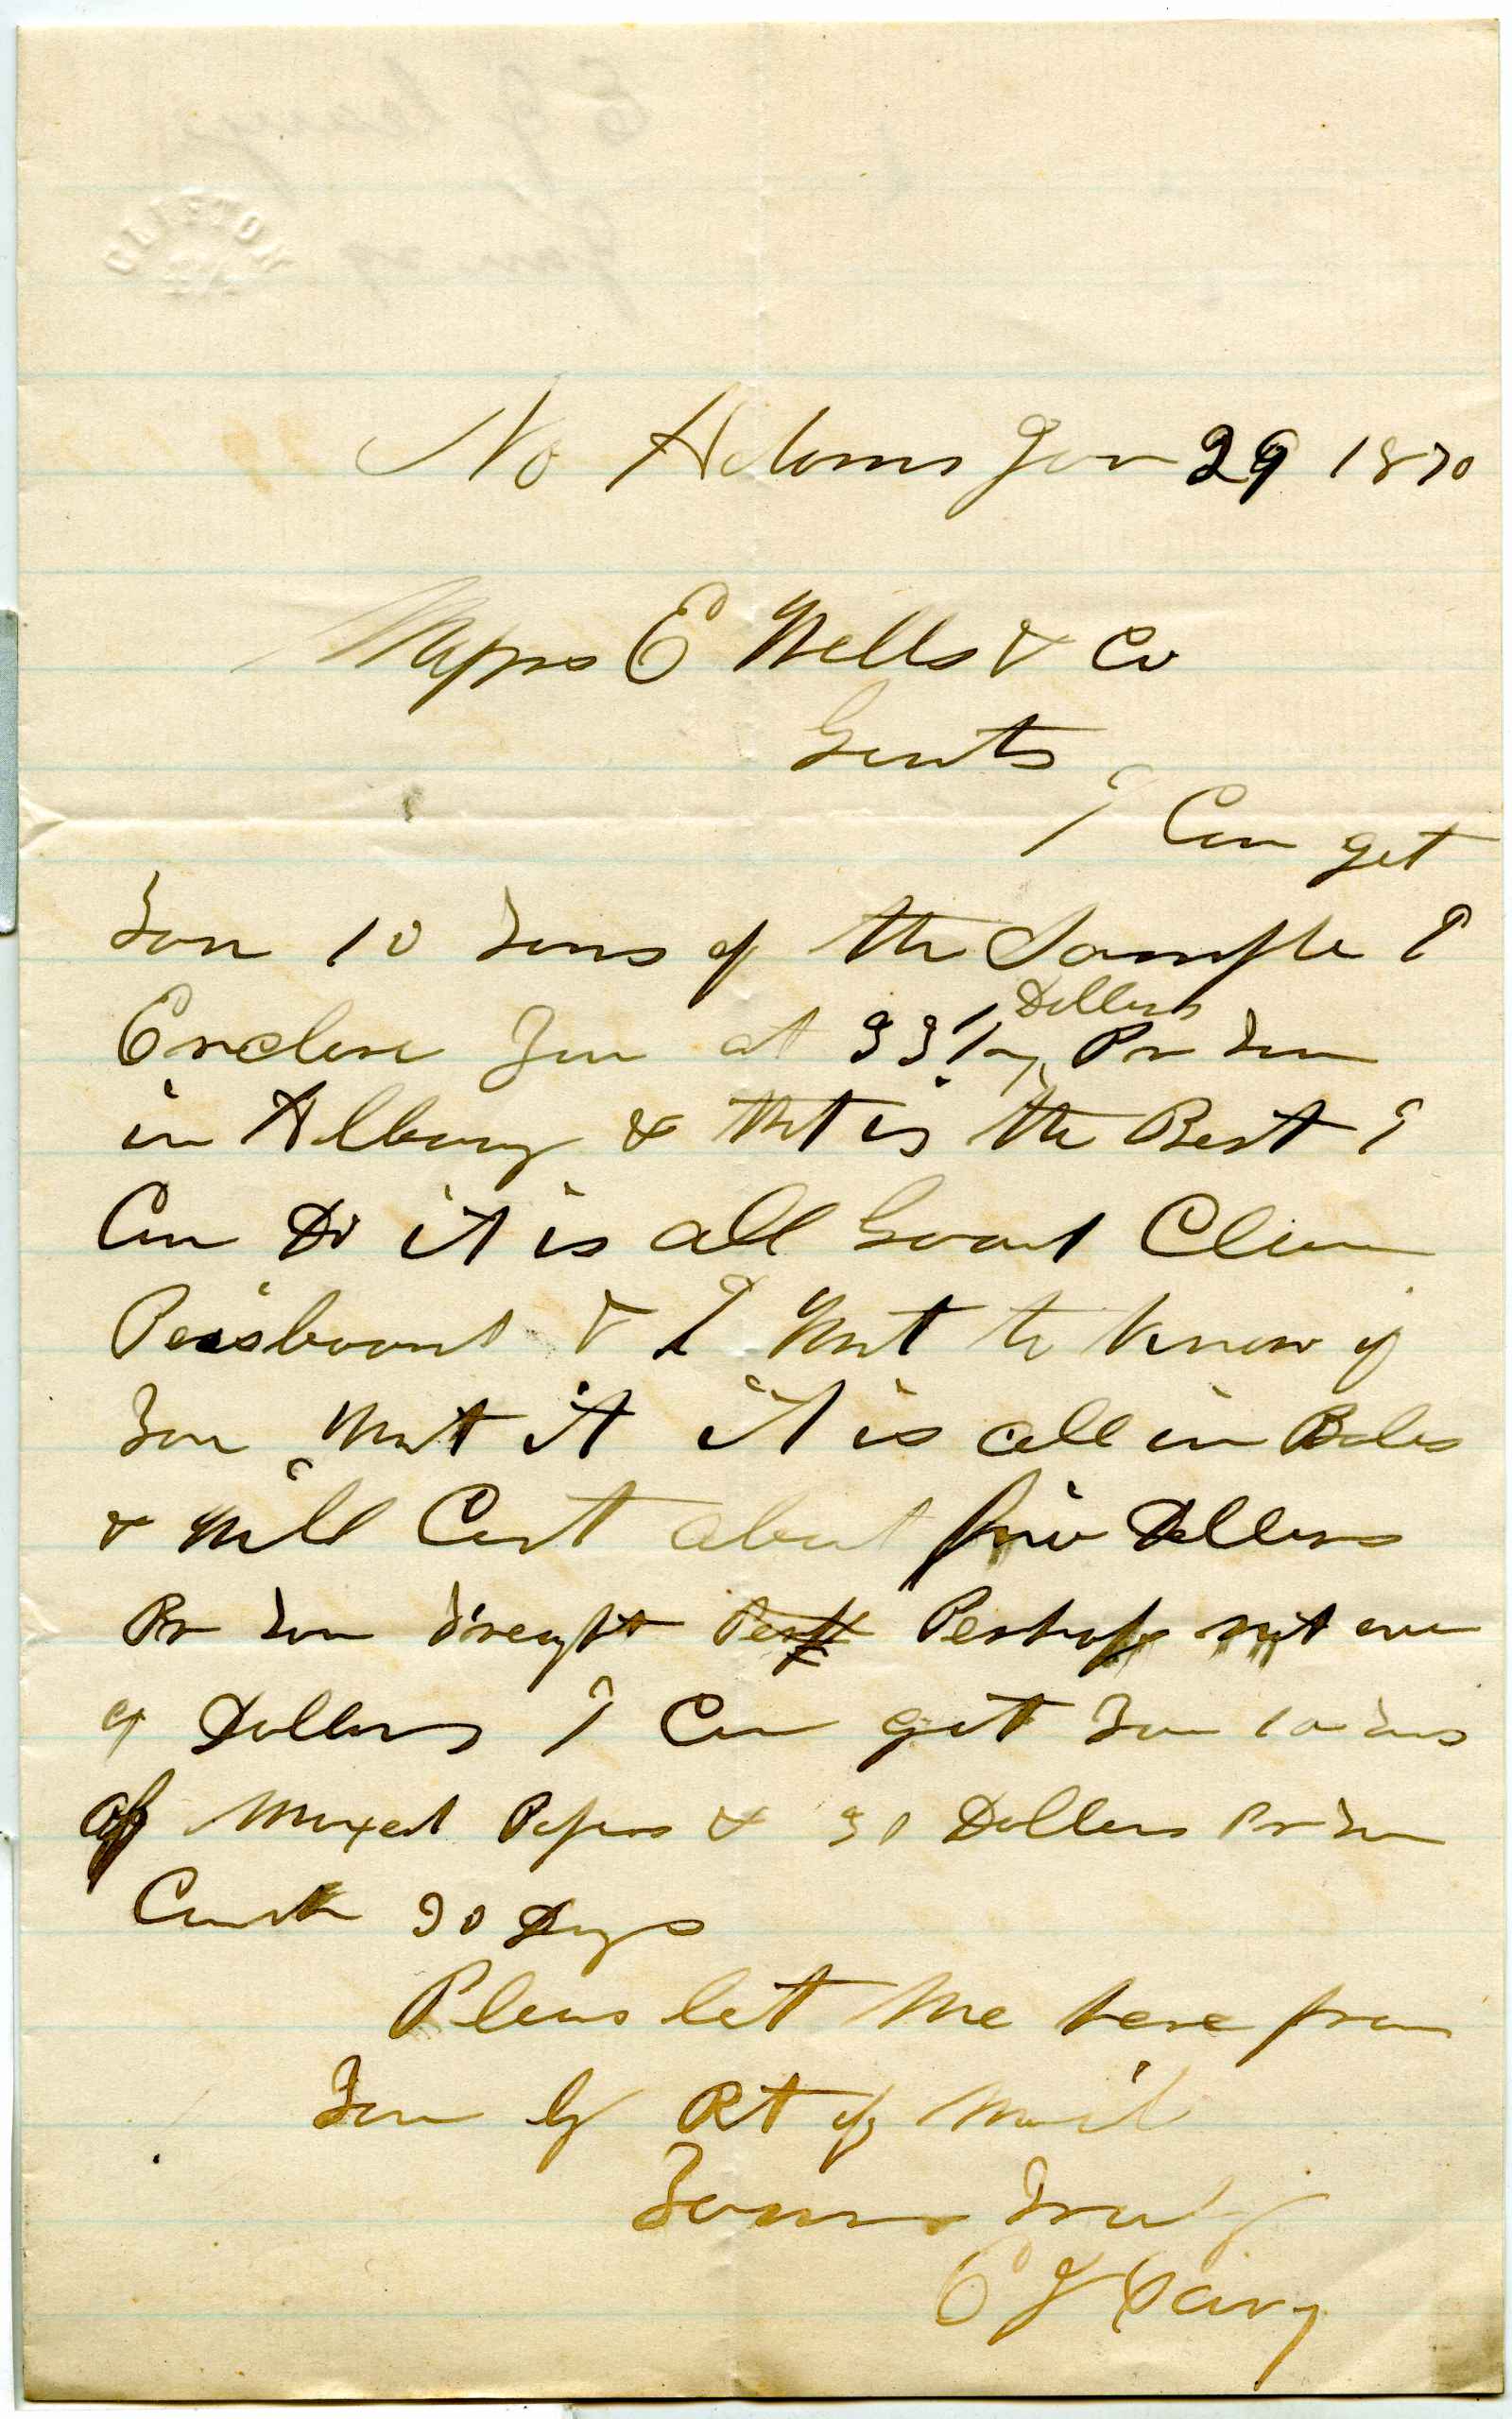 CLIFTON
No Adams Jan 29 1870
Messrs E Wells & Co
Gents
I Can get
You 10 Tons of the Sample I
Enclose You at 33 1/2 Dollers Pr Ton
in Albany & tht is the Best I
Can Do it is all Good Clean
& I Wnt to Know if
You Wnt it it is all in Bales
& Will Cost about five Dollers
Pr Ton Freight Perh Perhaps not over
4 Dollers I Can get You 10 Tons
of Mixed Papers & 30 Dollers Pr Ton
Cash 30 Days
Pleas let Me here from
You by Rt of Mail
Yours Truly
E J Cary